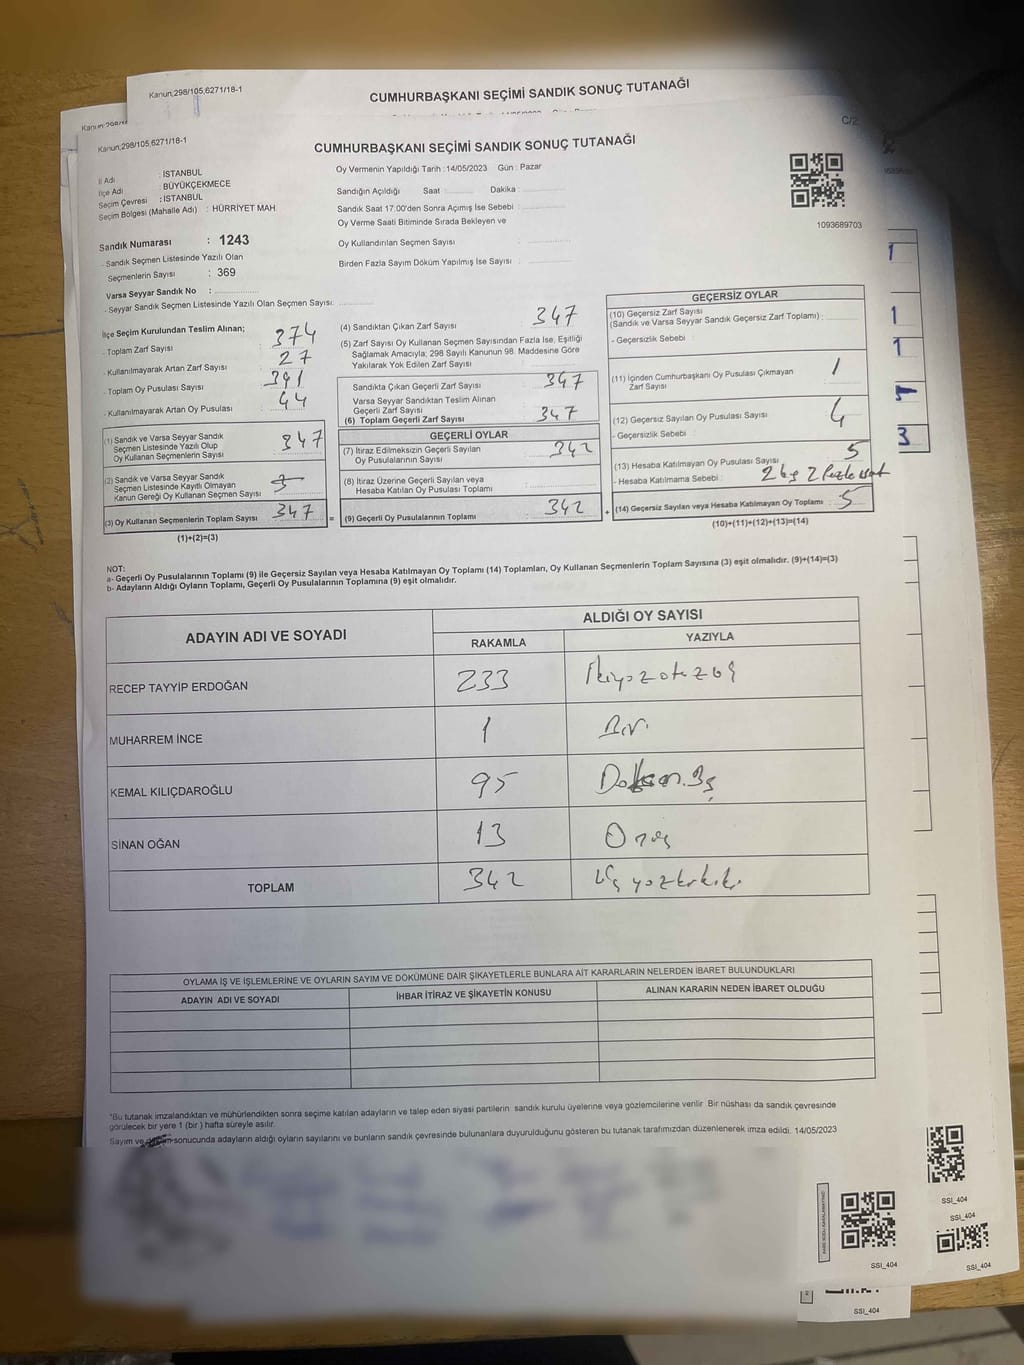 Kanun;298/105,6271/18-1
CUMHURBAŞKANI SEÇİMİ SANDIK SONUÇ TUTANAĞI
C/2
Kanun;298/105,6271/18-1
CUMHURBAŞKANI SEÇİMİ SANDIK SONUÇ TUTANAĞI
İl Adı : İSTANBUL
İlçe Adı : BÜYÜKÇEKMECE
Seçim Çevresi : İSTANBUL
Seçim Bölgesi (Mahalle Adı) : HÜRRİYET MAH.
Sandık Numarası : 1243
- Sandık Seçmen Listesinde Yazılı Olan
Seçmenlerin Sayısı : 369
Varsa Seyyar Sandık No :
- Seyyar Sandık Seçmen Listesinde Yazılı Olan Seçmen Sayısı:
Oy Vermenin Yapıldığı Tarih : 14/05/2023 Gün : Pazar
Sandığın Açıldığı Saat : Dakika :
Sandık Saat 17.00'den Sonra Açımış İse Sebebi :
Oy Verme Saati Bitiminde Sırada Bekleyen ve
Oy Kullandırılan Seçmen Sayısı :
Birden Fazla Sayım Döküm Yapılmış İse Sayısı :
1093689703
İlçe Seçim Kurulundan Teslim Alınan;
- Toplam Zarf Sayısı : 374
- Kullanılmayarak Artan Zarf Sayısı : 27
- Toplam Oy Pusulası Sayısı : 391
- Kullanılmayarak Artan Oy Pusulası : 44
(1) Sandık ve Varsa Seyyar Sandık
Seçmen Listesinde Yazılı Olup
Oy Kullanan Seçmenlerin Sayısı : 347
(2) Sandık ve Varsa Seyyar Sandık
Seçmen Listesinde Kayıtlı Olmayan
Kanun Gereği Oy Kullanan Seçmen Sayısı :
(3) Oy Kullanan Seçmenlerin Toplam Sayısı : 347
(1)+(2)=(3)
(4) Sandıktan Çıkan Zarf Sayısı : 347
(5) Zarf Sayısı Oy Kullanan Seçmen Sayısından Fazla İse, Eşitliği
Sağlamak Amacıyla; 298 Sayılı Kanunun 98. Maddesine Göre
Yakılarak Yok Edilen Zarf Sayısı :
Sandıkta Çıkan Geçerli Zarf Sayısı : 347
Varsa Seyyar Sandıktan Teslim Alınan
Geçerli Zarf Sayısı :
(6) Toplam Geçerli Zarf Sayısı : 347
GEÇERLİ OYLAR
(7) İtiraz Edilmeksizin Geçerli Sayılan
Oy Pusulalarının Sayısı : 342
(8) İtiraz Üzerine Geçerli Sayılan veya
Hesaba Katılan Oy Pusulası Toplamı :
= (9) Geçerli Oy Pusulalarının Toplamı : 342
GEÇERSİZ OYLAR
(10) Geçersiz Zarf Sayısı
(Sandık ve Varsa Seyyar Sandık Geçersiz Zarf Toplamı) :
- Geçersizlik Sebebi :
(11) İçinden Cumhurbaşkanı Oy Pusulası Çıkmayan
Zarf Sayısı : 1
(12) Geçersiz Sayılan Oy Pusulası Sayısı : 4
- Geçersizlik Sebebi :
(13) Hesaba Katılmayan Oy Pusulası Sayısı : 5
- Hesaba Katılmama Sebebi :
+ (14) Geçersiz Sayılan veya Hesaba Katılmayan Oy Toplamı : 5
(10)+(11)+(12)+(13)=(14)
1
1
1
5
3
NOT:
a- Geçerli Oy Pusulalarının Toplamı (9) ile Geçersiz Sayılan veya Hesaba Katılmayan Oy Toplamı (14) Toplamları, Oy Kullanan Seçmenlerin Toplam Sayısına (3) eşit olmalıdır. (9)+(14)=(3)
b- Adayların Aldığı Oyların Toplamı, Geçerli Oy Pusulalarının Toplamına (9) eşit olmalıdır.
ADAYIN ADI VE SOYADI ALDIĞI OY SAYISI
RAKAMLA YAZIYLA
RECEP TAYYİP ERDOĞAN 233
MUHARREM İNCE 1 Bir
KEMAL KILIÇDAROĞLU 95
SİNAN OĞAN 13 Onüç
TOPLAM 342
OYLAMA İŞ VE İŞLEMLERİNE VE OYLARIN SAYIM VE DÖKÜMÜNE DAİR ŞİKAYETLERLE BUNLARA AİT KARARLARIN NELERDEN İBARET BULUNDUKLARI
ADAYIN ADI VE SOYADI İHBAR İTİRAZ VE ŞİKAYETİN KONUSU ALINAN KARARIN NEDEN İBARET OLDUĞU
*Bu tutanak imzalandıktan ve mühürlendikten sonra seçime katılan adayların ve talep eden siyasi partilerin sandık kurulu üyelerine veya gözlemcilerine verilir. Bir nüshası da sandık çevresinde
görülecek bir yere 1 (bir ) hafta süreyle asılır.
Sayım ve sonucunda adayların aldığı oyların sayılarını ve bunların sandık çevresinde bulunanlara duyurulduğunu gösteren bu tutanak tarafımızdan düzenlenerek imza edildi. 14/05/2023
SSİ_404
SSİ_404
SSİ_404
SSİ_404
SSİ_404